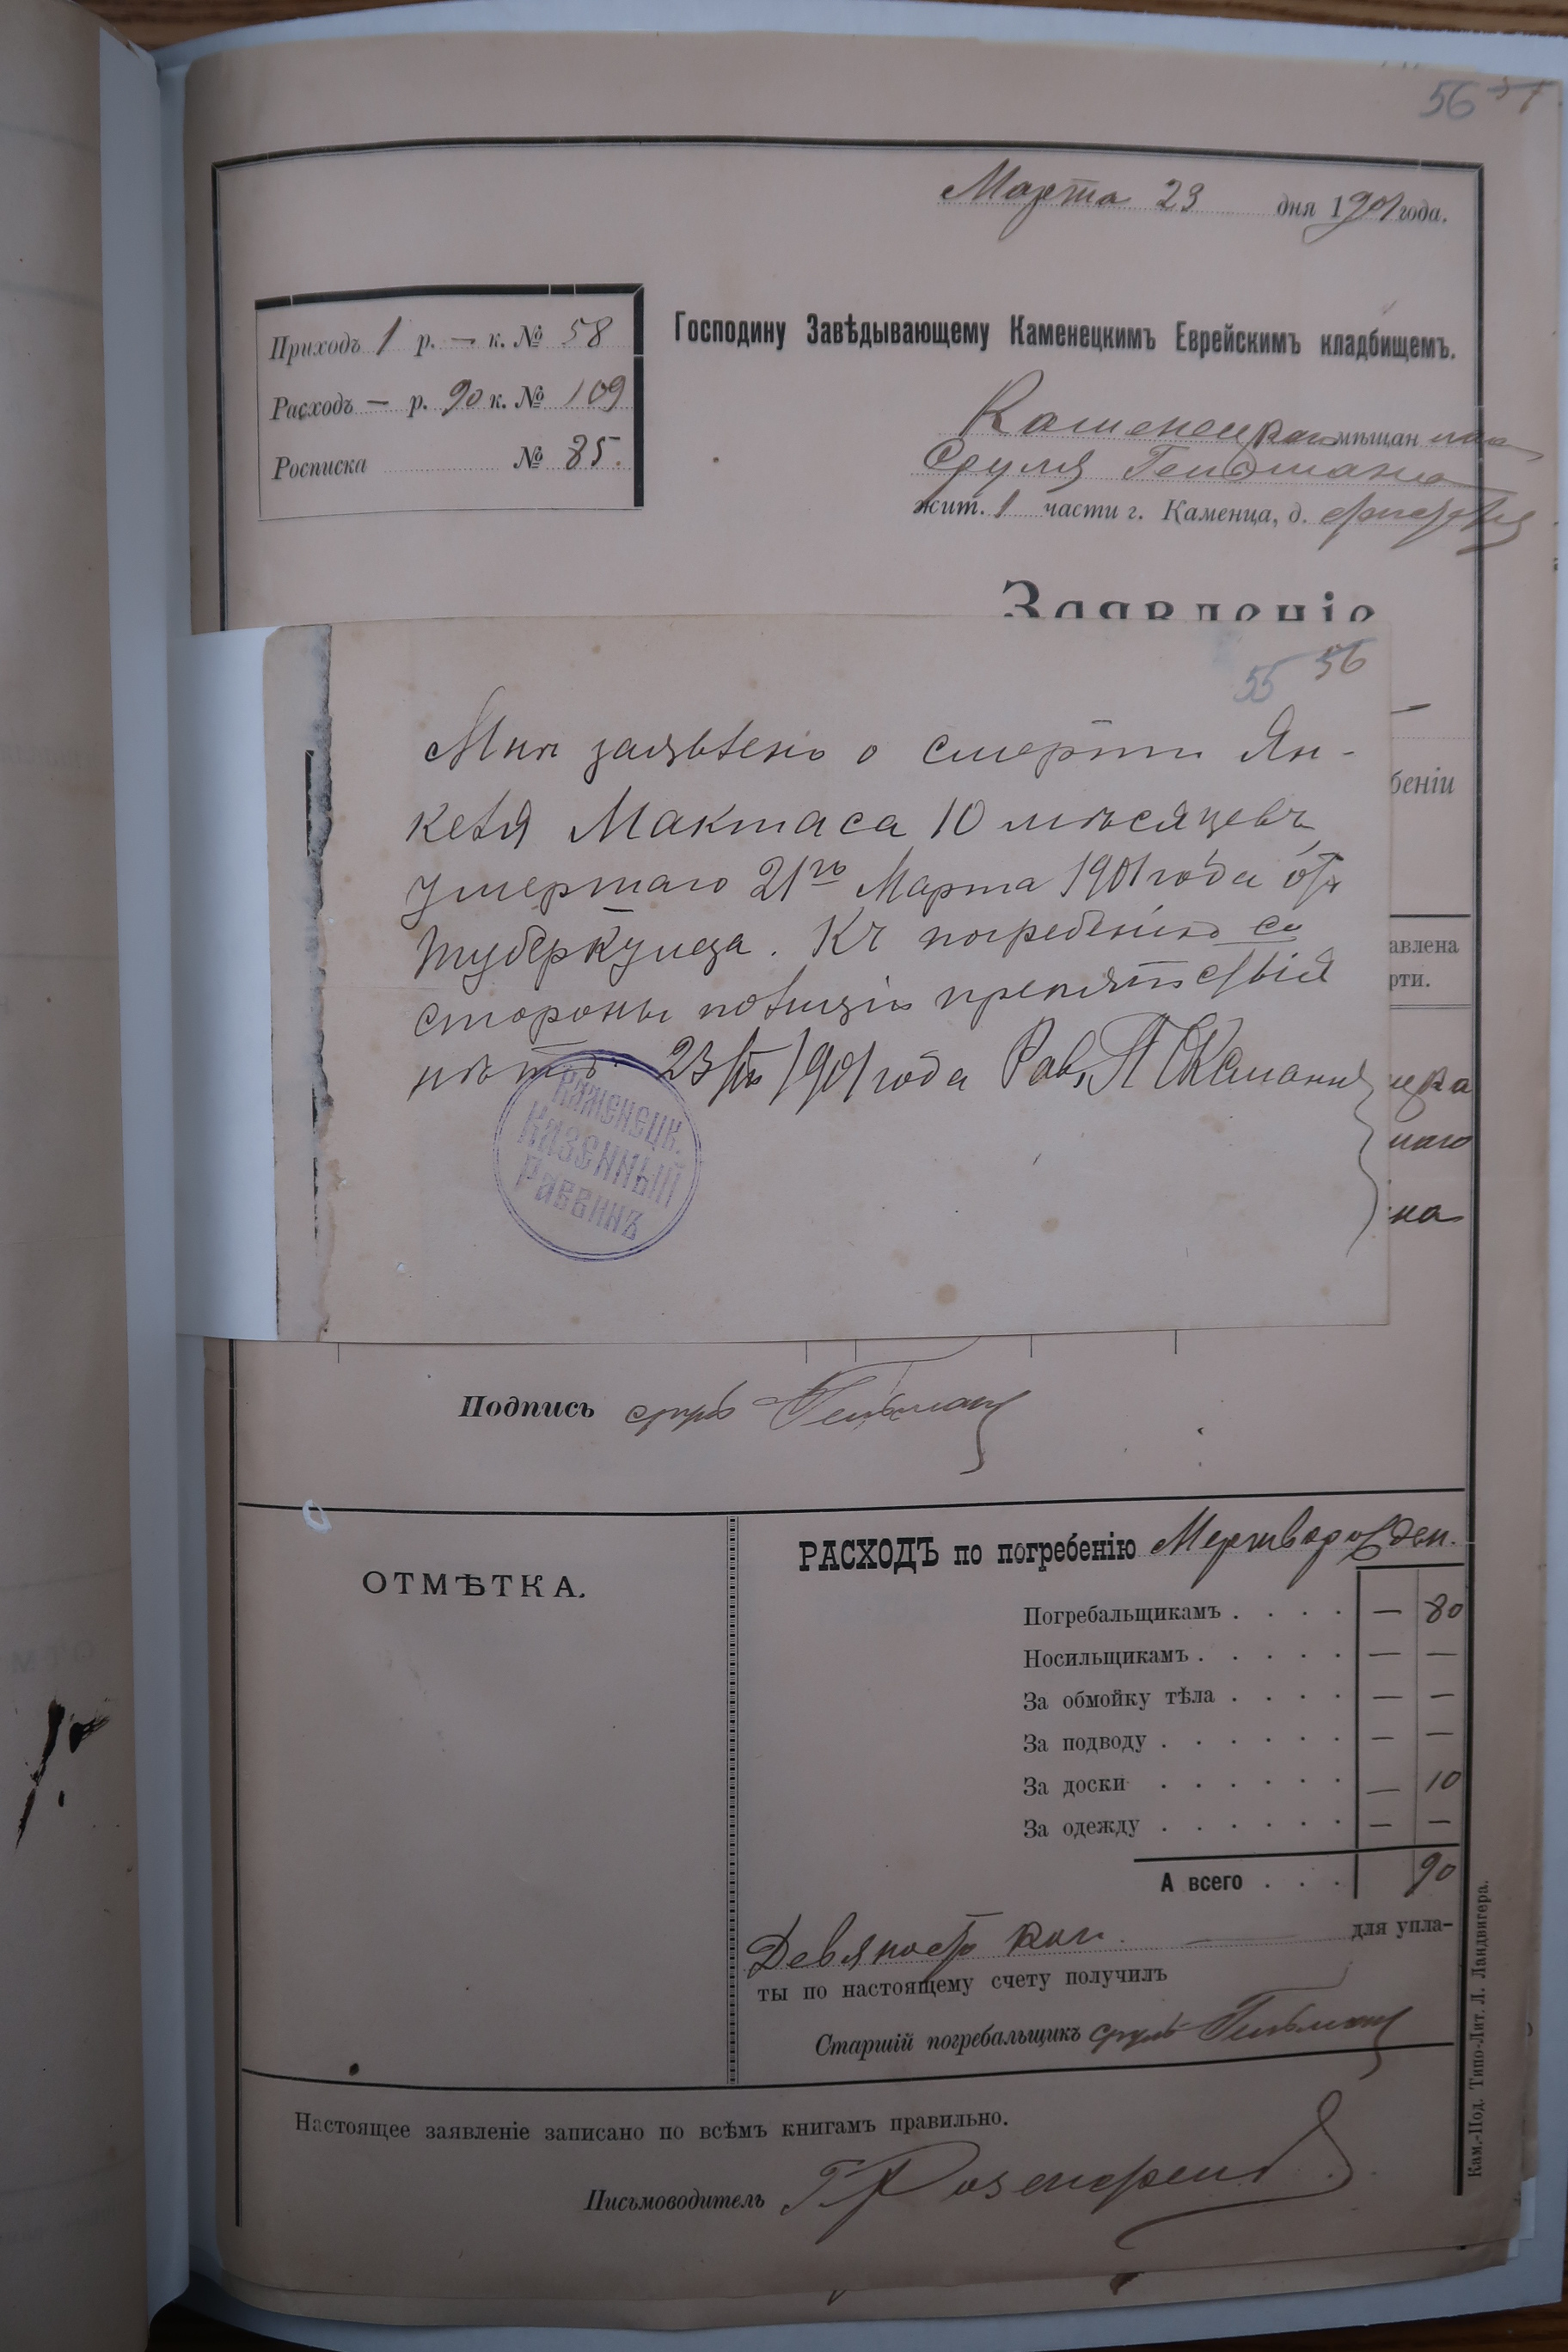 56 57
Марта 23 дня 1901 года.
Приходъ 1 р. — к. № 58
Расходъ — р. 90 к. № 109
Росписка № 85.
Господину Завѣдывающему Каменецкимъ Еврейскимъ кладбищемъ.
мѣщан
Сруля Гельмана
жит. 1 части г. Каменца, д.
Заявленіе
55 56
Мнѣ заявлено о смерти Ян-
келя Мактаса 10 мѣсяцевъ
умершаго 21го Марта 1901 года отъ
туберкулеза. Къ погребенію со
стороны полиціи препятствія
нѣтъ. 23/III 1901 года Рав.
Каменецк.
Казенный
Раввинъ
беніи
авлена
рти.
наго
на
Подпись сруль Гельман
ОТМѢТКА.
РАСХОДЪ по погребенію Мертворожден.
Погребальщикамъ . . . . — 80
Носильщикамъ . . . . . — —
За обмойку тѣла . . . . — —
За подводу . . . . . . — —
За доски . . . . . . — 10
За одежду . . . . . . — —
А всего . . . 90
Девяносто коп. для упла-
ты по настоящему счету получилъ
Старшій погребальщикъ сруль Гельман
Настоящее заявленіе записано по всѣмъ книгамъ правильно.
Письмоводитель Г Розенфельд
Кам.-Под. Типо-Лит. Л. Ландвигера.